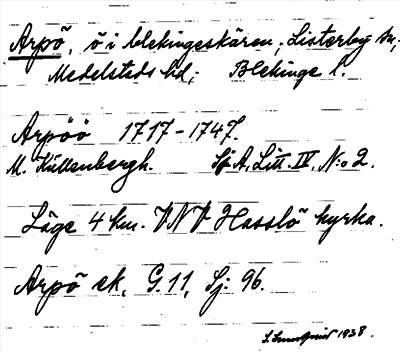 Arpö, ö i blekingeskären, Listerby sn,
Medelstads hd; Blekinge l.
Arpöö 1717-1747.
M. Kullenbergh. Sj A, Litt. IV, N:o 2.
Läge 4 km. VNV Hasslö kyrka.
Arpö ek, G. 11, Sj: 96.
1938.